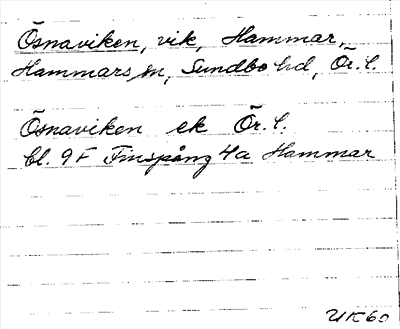 Ösnaviken, vik, Hammar,
Hammars sn, Sundbo hd, Ör. l.
Ösnaviken ek Ör. l.
bl. 9F Finspång 4a Hammar
UK60